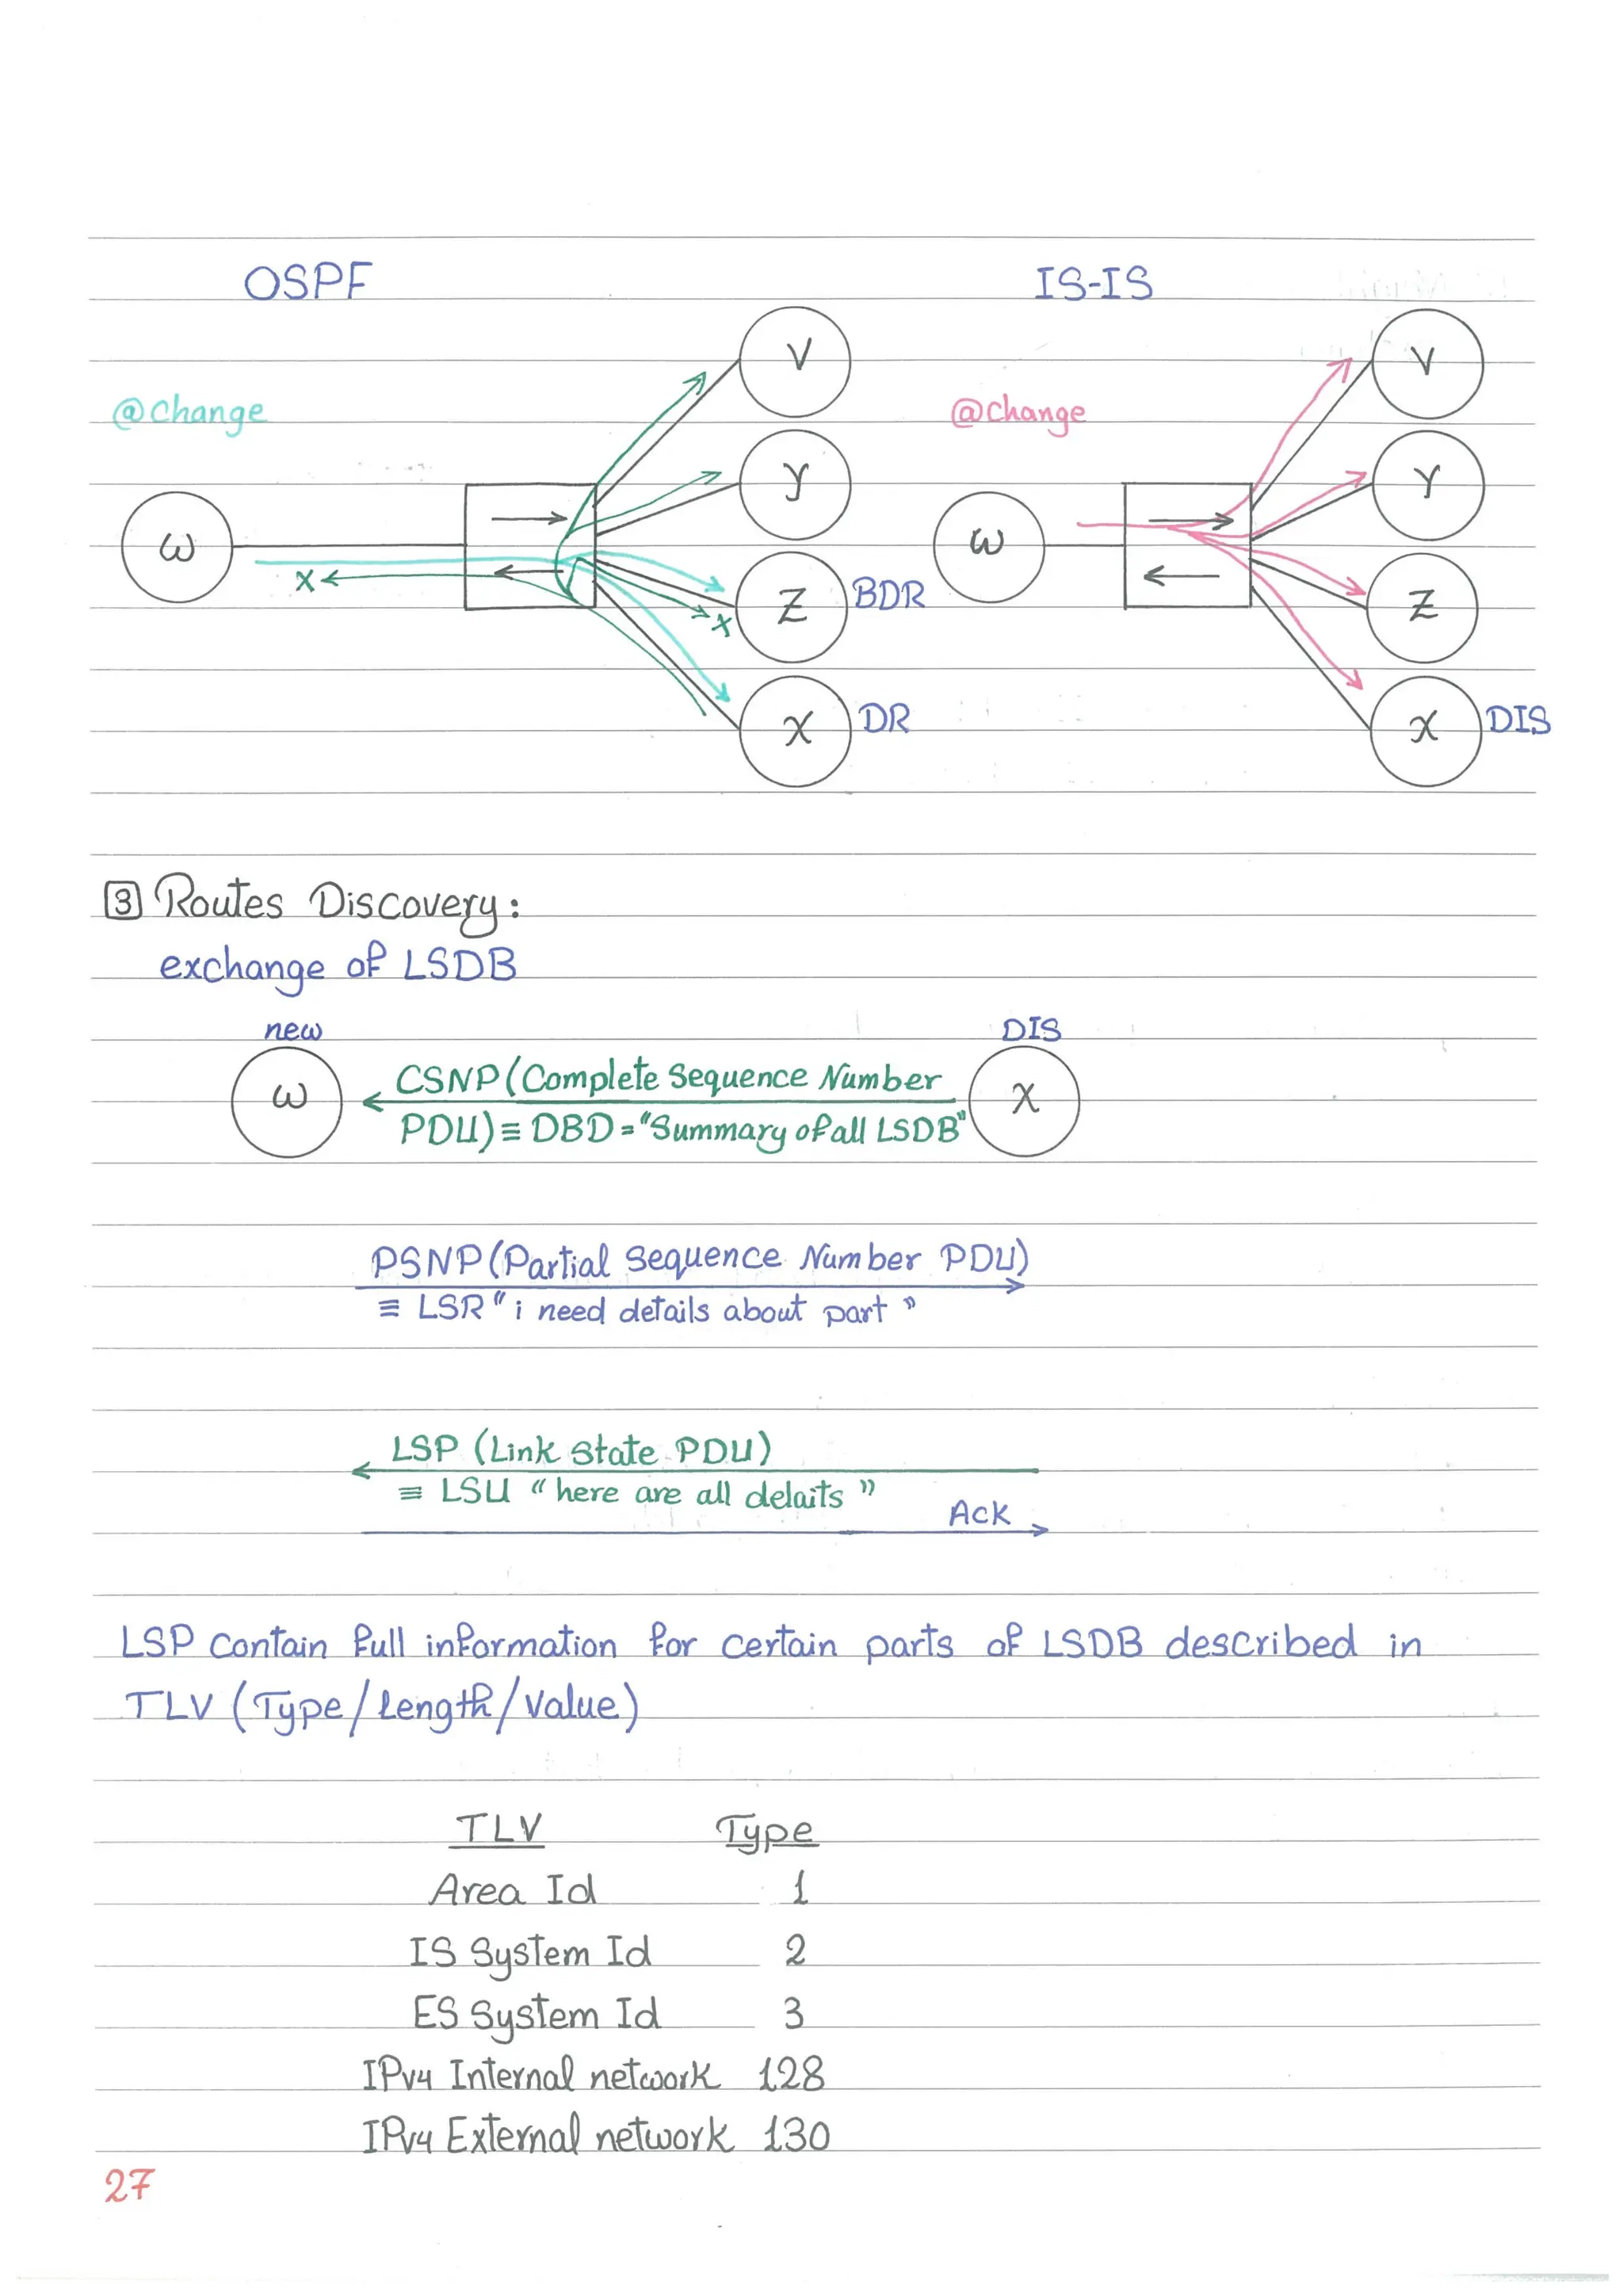 OSPF IS-IS
V V
@change @change
Y Y
ω ω
X
Z BDR Z
X
X DR X DIS
3 Routes Discovery:
exchange of LSDB
new DIS
ω CSNP (Complete Sequence Number X
PDU) ≡ DBD = "Summary of all LSDB"
PSNP (Partial Sequence Number PDU)
≡ LSR "i need details about part"
LSP (Link State PDU)
≡ LSU "here are all delaits"
Ack
LSP contain full information for certain parts of LSDB described in
TLV (Type/Length/Value)
TLV Type
Area Id 1
IS System Id 2
ES System Id 3
IPv4 Internal network 128
IPv4 External network 130
27